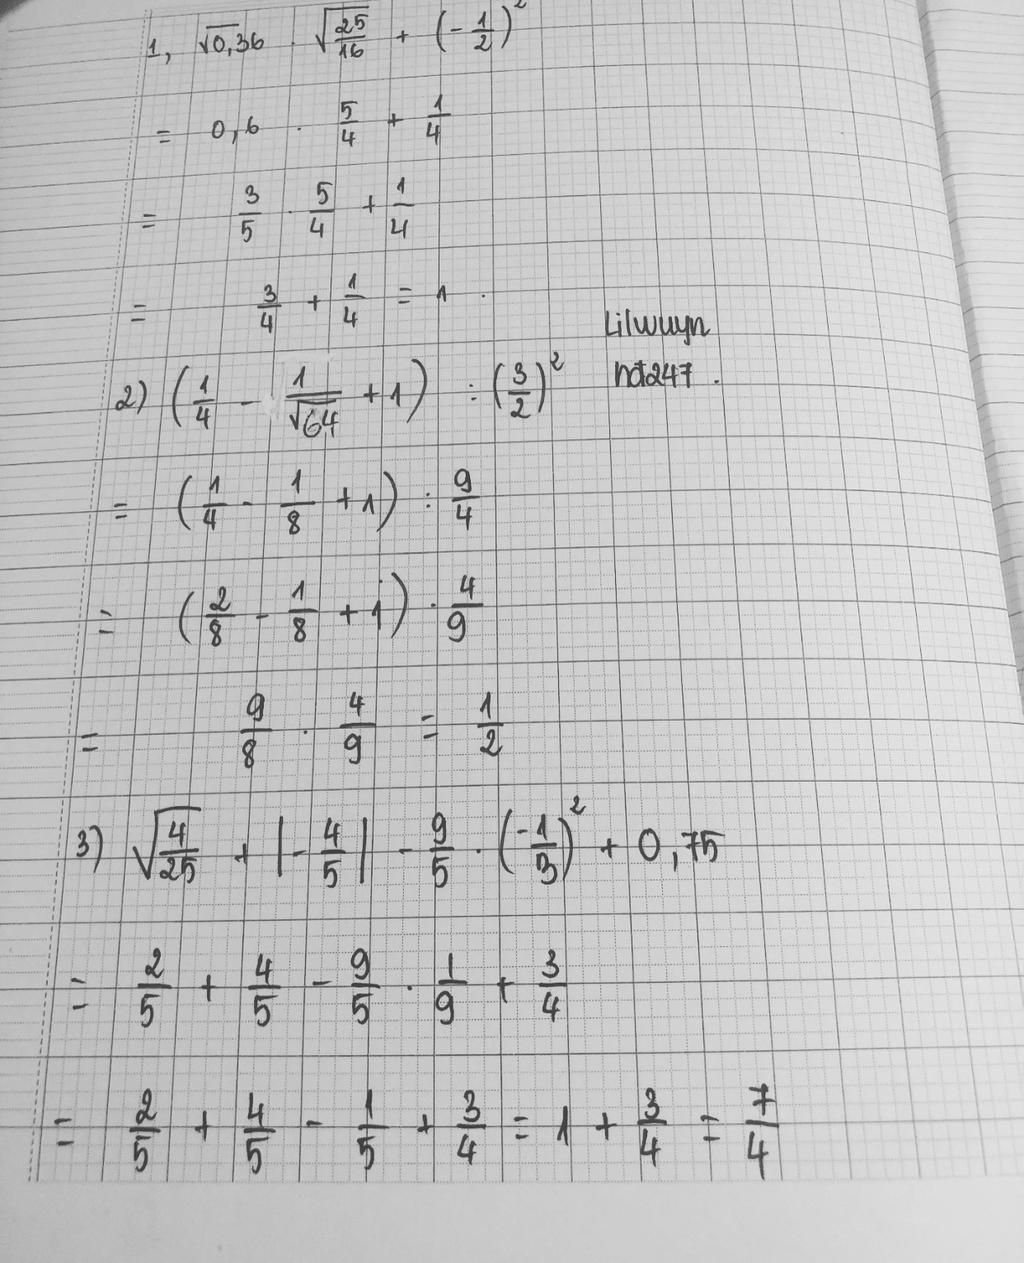 1, √0,36 · √(25/16) + (-1/2)²
= 0,6 · 5/4 + 1/4
= 3/5 · 5/4 + 1/4
= 3/4 + 1/4 = 1 .
Lilwuyn
hdt247 .
2) (1/4 - 1/√64 + 1) : (3/2)²
= (1/4 - 1/8 + 1) : 9/4
= (2/8 - 1/8 + 1) · 4/9
= 9/8 · 4/9 = 1/2
3) √(4/25) + |-4/5| - 9/5 · (-1/3)² + 0,75
= 2/5 + 4/5 - 9/5 · 1/9 + 3/4
= 2/5 + 4/5 - 1/5 + 3/4 = 1 + 3/4 = 7/4